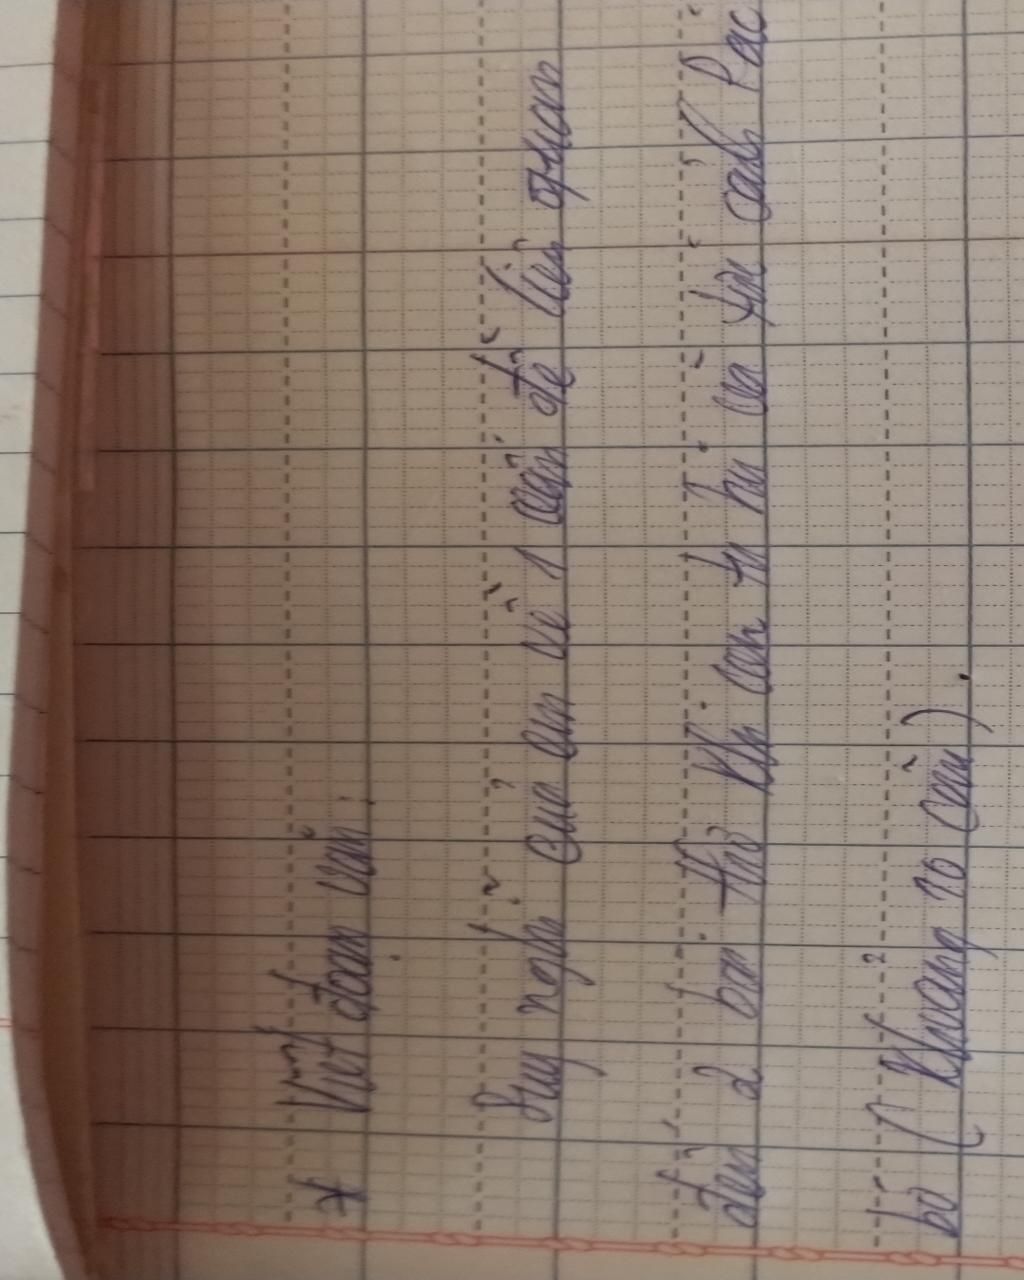 * Viết đoạn văn:
Suy nghĩ của em về 1 vấn đề liên quan
đến 2 bài thơ Khi con tu hú và tức cảnh Pác
bó ( Khoảng 10 câu ).